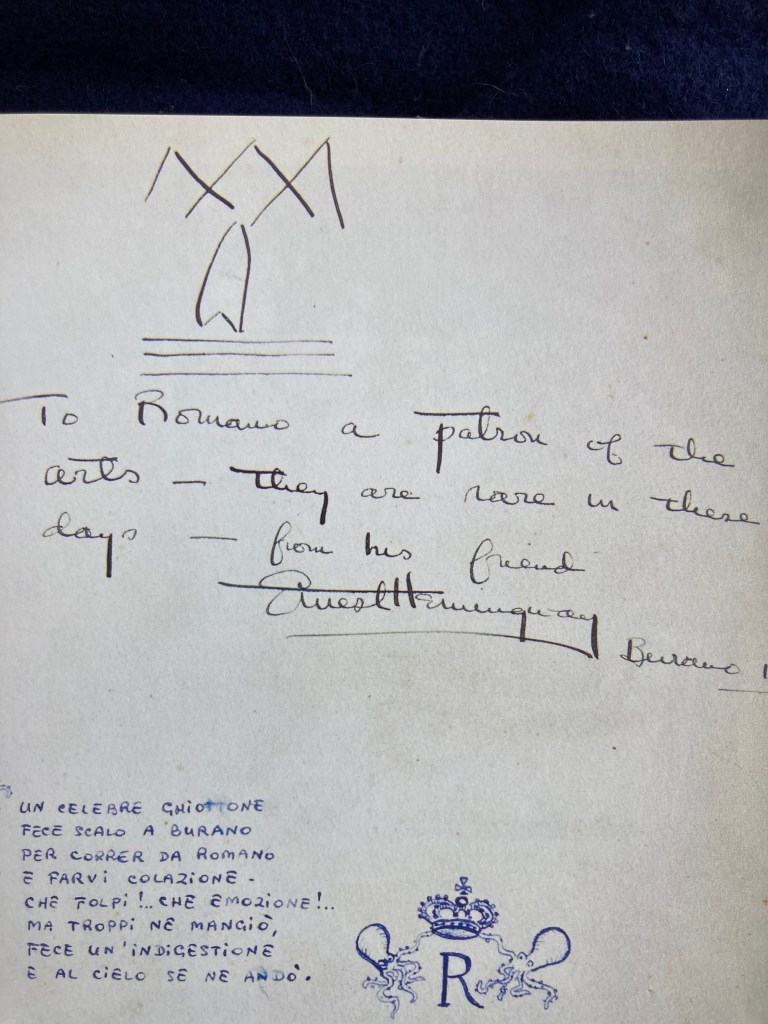 To Romano a patron of the
arts — they are rare in these
days — from his friend
Ernest Hemingway
Burano
UN CELEBRE GHIOTTONE
FECE SCALO A BURANO
PER CORRER DA ROMANO
E FARVI COLAZIONE -
CHE FOLPI!.. CHE EMOZIONE!..
MA TROPPI NE MANGIÒ,
FECE UN'INDIGESTIONE
E AL CIELO SE NE ANDÒ.
R